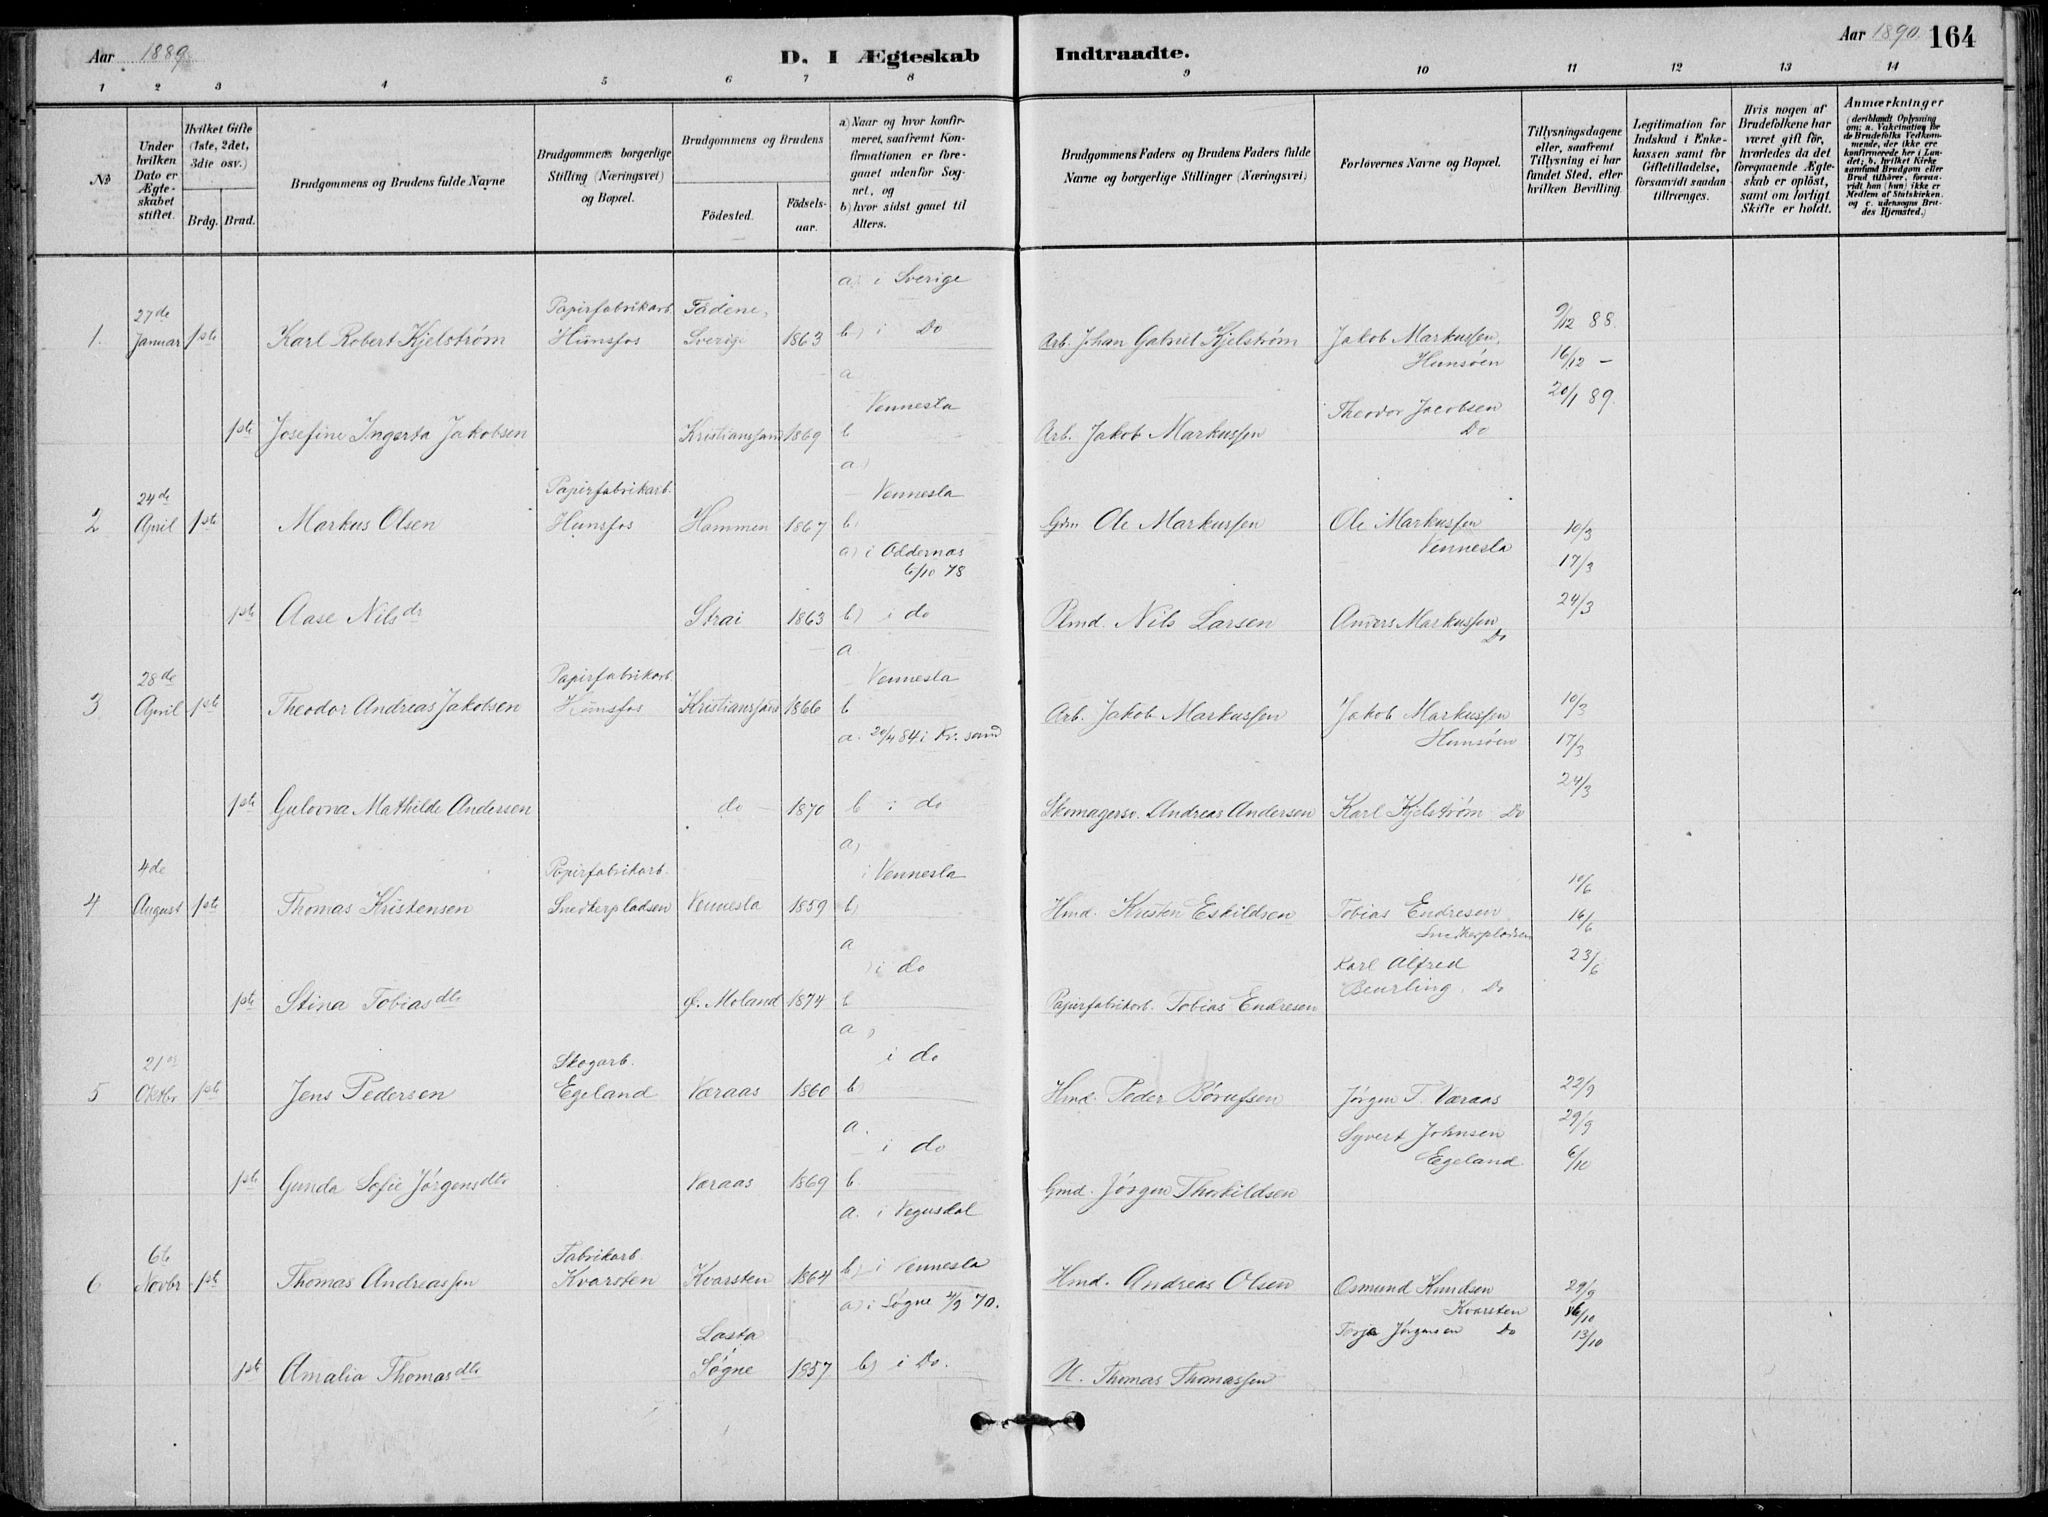 Aar 1889
D. I Ægteskab Indtraadte.
Aar 1890 164
1 2 3 4 5 6 7 8 9 10 11 12 13 14
No
Under hvilken Dato er Ægteskabet stiftet.
Hvilket Gifte (1ste, 2det, 3die osv.)
Brdg. Brud.
Brudgommens og Brudens fulde Navne
Brudgommens borgerlige Stilling (Næringsvei) og Bopæl.
Brudgommens og Brudens
Födested. Födselsaar.
a) Naar og hvor konfirmeret, saafremt Konfirmationen er foregaaet udenfor Sognet, og
b) hvor sidst gaaet til Alters.
Brudgommens Faders og Brudens Faders fulde Navne og borgerlige Stillinger (Næringsvei)
Forlovernes Navne og Bopæl.
Tillysningsdagene eller, saafremt Tillysning ei har fundet Sted, efter hvilken Bevilling.
Legitimation for Indskud i Enkekassen samt for Giftetilladelse, forsaavidt saadan tiltrænges.
Hvis nogen af Brudefolkene har været gift för, hvorledes da det foregaaende Ægteskab er oplöst, samt om lovligt Skifte er holdt.
Anmærkninger (deriblandt Oplysning om: a. Vakcination for de Brudefolks Vedkommende, der ikke ere konfirmerede her i Landet; b. hvilket Kirkesamfund Brudgom eller Brud tilhörer, forsaavidt han (hun) ikke er Medlem af Statskirken, og c. udensogns Brudes Hjemsted.)
a) i Sverige
27de Papirfabrikarb. Fådene,
1. Januar 1ste Karl Robert Kjelstrøm Hunsfos Sverige 1863 b) i Do Arb. Johan Gabriel Kjelström Jakob Markussen, Hunsöen 9/12 88.
16/12 –
20/1 89.
a Vennesla
1ste Josefine Ingerta Jakobsen Kristianssand 1869 b Arb. Jakob Markussen Theodor Jacobsen Do
a) Vennesla
24de Papirfabrikarb.
2 April 1ste Markus Olsen Hunsfos Hommen 1867 b Gdm Ole Markussen Ole Markussen Vennesla 10/3
17/3
24/3
a) i Oddernæs 6/10 78
1ste Aase Nilsdr Strai 1863 b) i do Plmd. Nils Larsen Anders Markussen Do
a Vennesla
28de Papirfabrikarb.
3 April 1ste Theodor Andreas Jakobsen Hunsfos Kristianssand 1866 b Arb. Jakob Markussen Jakob Markussen Hunsöen 10/3
17/3
24/3
a. 20/4 84 i Kr.sand
1ste Gulovna Mathilde Andersen do 1870 b i do Skomagersv. Andreas Andersen Karl Kjelström Do
a) i Vennesla
4de Papirfabrikarb.
4 August 1ste Thomas Kristensen Snedkerpladsen Vennesla 1859 b) Hmd. Kristen Eskildsen Tobias Endresen Snedkerpladsen 10/6
16/6
23/6
a) i do
1ste Stina Tobiasdtr Ø. Moland 1874 b Papirfabrikarb. Tobias Endresen Karl Alfred Beurling. Do
a) i do
21de Skogarb.
5 Oktbr 1ste Jens Pedersen Egeland Væraas 1860 b) Hmd. Peder Börufsen Jörgen T. Væraas 22/9
29/9
6/10
a. i do
1ste Gunda Sofie Jörgensdtr Væraas 1869 b. Gmd. Jörgen Thorkildsen Syvert Johnsen Egeland
a. i Vegusdal
6te Fabrikarb.
6 Novbr 1ste Thomas Andreassen Kvarsten Kvarsten 1864 b) i Vennesla Hmd. Andreas Olsen Osmund Knudsen Kvarsten 29/9
6/10
13/10
a) i Søgne /9 70.
Lasta
1ste Amalia Thomasdtr Søgne 1857 b) i Do. N. Thomas Thomassen Torje Jörgensen Do